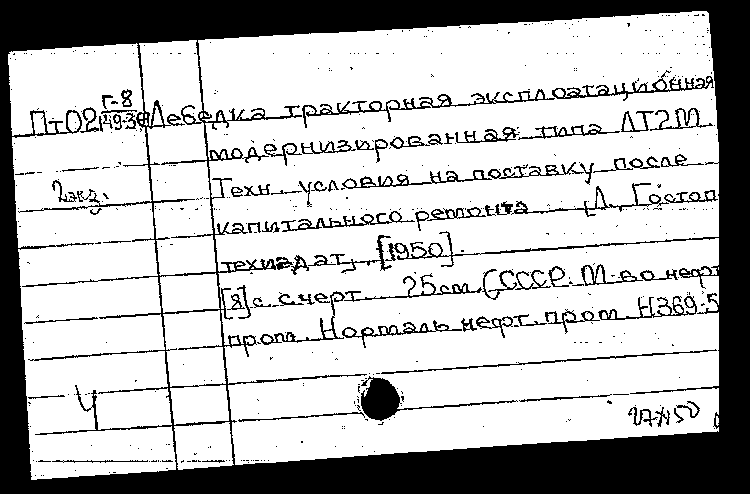 Г-8
Пт02 149.36 Лебедка тракторная эксплоатационная
модернизированная типа ЛТ2М.
2 экз. Техн. условия на поставку после
капитального ремонта [Л., Гостоп-
техиздат], [1950].
[8] с. с черт. 25см. (СССР. М-во нефт.
пром. Нормаль нефт. пром. Н369-5
Ч